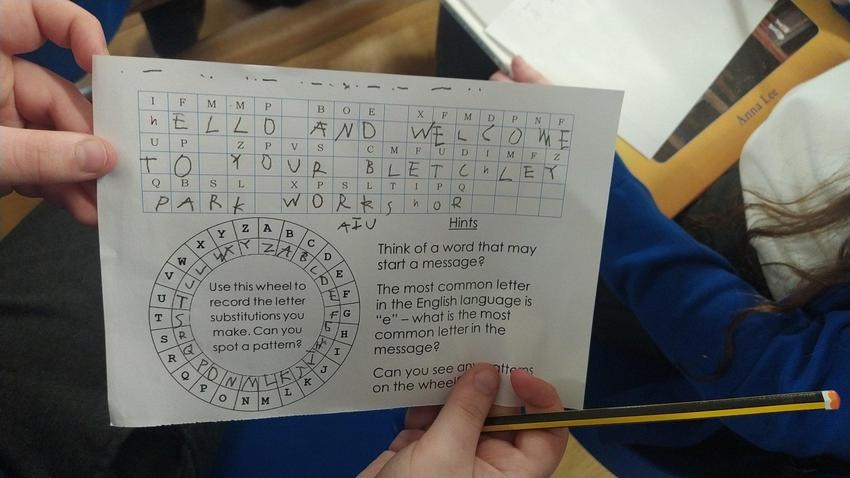 I F M M P B O E X F M D P N F
h E L L O A N D W E L C O M E
U P Z P V S C M F U D I M F Z
T O Y O U R B L E T C h L E Y
Q B S L X P S L T I P Q
P A R K W O R K S h O P
A I U
Hints
Think of a word that may
start a message?
The most common letter
in the English language is
"e" – what is the most
common letter in the
message?
Can you see any patterns
on the wheel
A B C D E F G H I J K L M N O P Q R S T U V W X Y Z
Use this wheel to
record the letter
substitutions you
make. Can you
spot a pattern?
Anna Lee